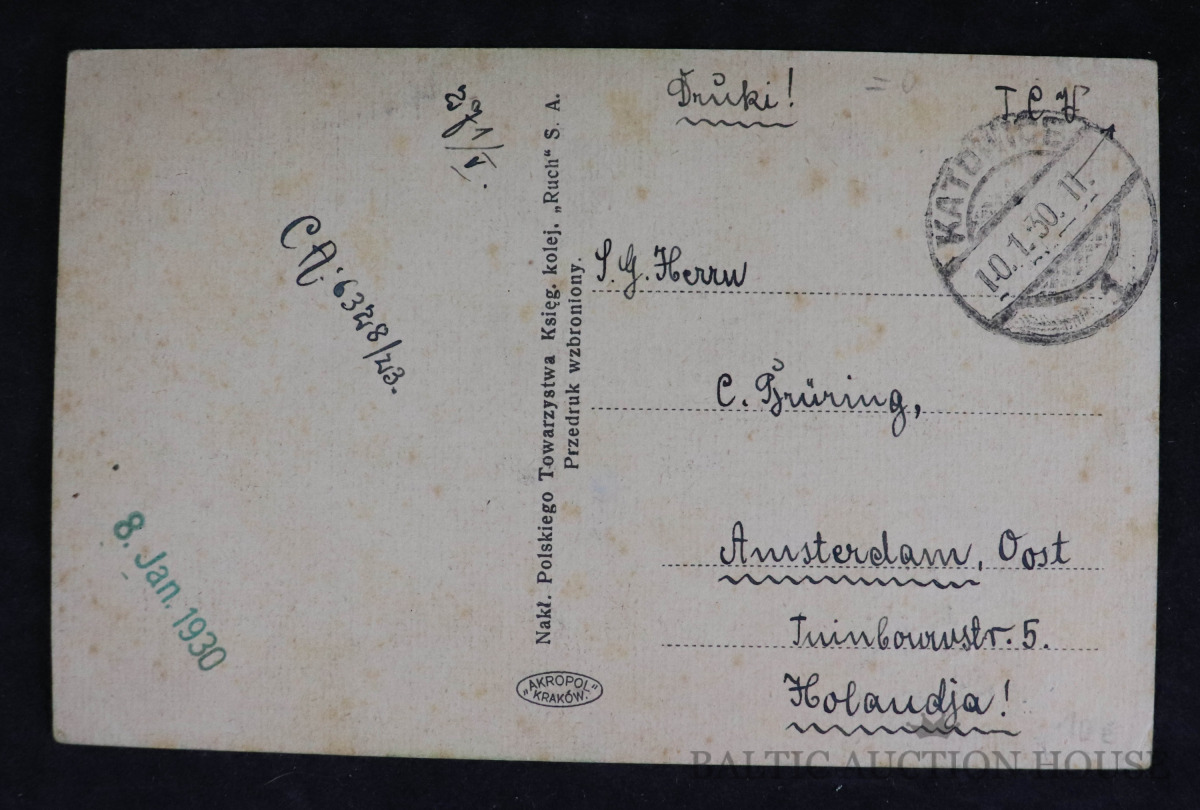 Druki!
T C V
KATOWICE
10.1.30.11.
1
S. G. Herrn
C. Brüring,
Amsterdam, Oost
Tuinbouwstr. 5.
Holandja!
CA: 6328/23.
8. Jan. 1930
Nakł. Polskiego Towarzystwa Księg. kolej. „Ruch" S. A.
Przedruk wzbroniony.
„AKROPOL"
KRAKÓW.
BALTIC AUCTION HOUSE